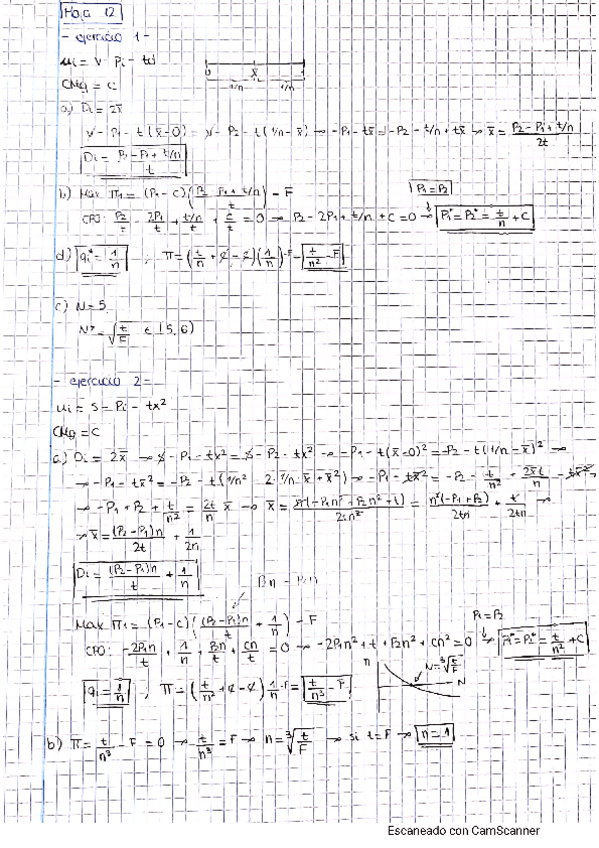 Hoja 12
- ejercicio 1 -
ui = v - Pi - td
CMg = c
0 x̄ 1/n 1/n
a) Di = 2x̄
v - P1 - t(x̄-0) = v - P2 - t(1/n - x̄) → -P1 - tx̄ = -P2 - t/n + tx̄ → x̄ = (P2 - P1 + t/n)/2t
Di = (P2 - P1 + t/n)/t
b) Max Π1 = (P1 - c)((P2 - P1 + t/n)/t) - F
P1 = P2
CPO: P2/t - 2P1/t + (t/n)/t + c/t = 0 → P2 - 2P1 + t/n + c = 0 → P1* = P2* = t/n + c
d) qi* = 1/n , Π = (t/n + c - c)(1/n) - F = t/n² - F
c) N = 5
N* = √(t/F) ∈ (5,6)
- ejercicio 2 -
ui = s - Pi - tx²
CMg = c
a) Di = 2x̄ → s - P1 - tx² = s - P2 - tx² → -P1 - t(x̄-0)² = -P2 - t(1/n - x̄)² →
→ -P1 - tx̄² = -P2 - t(1/n² - 2·1/n·x̄ + x̄²) → -P1 - tx̄² = -P2 - t/n² + 2x̄t/n - tx̄² →
→ -P1 + P2 + t/n² = 2t/n x̄ → x̄ = n(-P1n² + P2n² + t)/2tn² = n²(-P1 + P2)/2tn + t/2tn →
→ x̄ = (P2 - P1)n/2t + 1/2n
Di = (P2 - P1)n/t + 1/n
P2n - P1n
Max Π1 = (P1 - c)((P2 - P1)n/t + 1/n) - F
P1 = P2
CPO: -2P1n/t + 1/n + P2n/t + cn/t = 0 → -2P1n² + t + P2n² + cn² = 0 → P1* = P2* = t/n² + c
Π N = ∛(t/F) N
qi = 1/n , Π = (t/n² + c - c)1/n - F = t/n³ - F
b) Π = t/n³ - F = 0 → t/n³ = F → n = ∛(t/F) → si t = F → n = 1
Escaneado con CamScanner